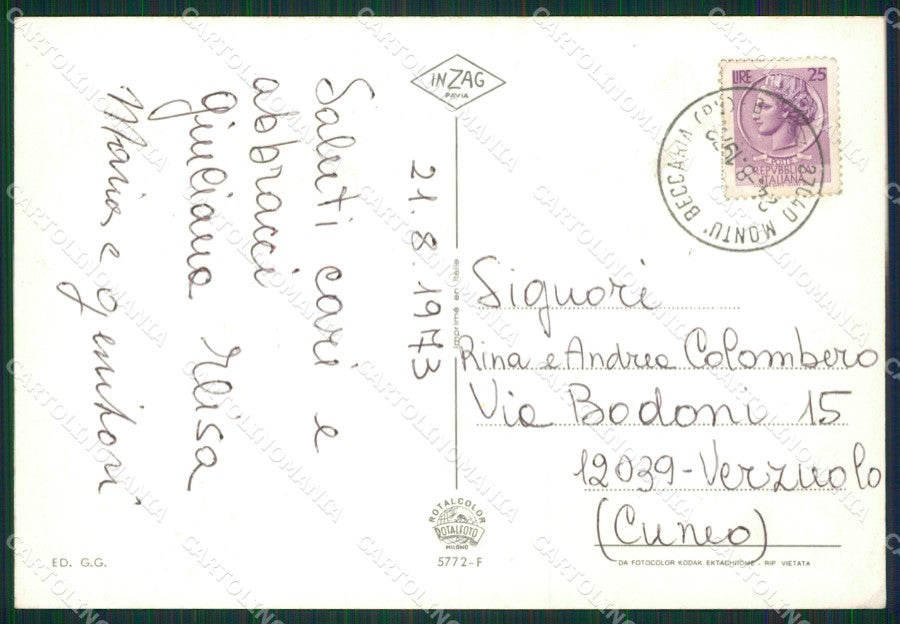 INZAG
PAVIA
Saluti cari e
abbracci
giuciana elisa
Maria e genitori
21.8.1973
Imprimé en Italie
LIRE 25
REPVBBLICA
ITALIANA
27040 MONTU' BECCARIA (PV)
22-8.1973
Signori
Rina e Andrea Colombero
Via Bodoni 15
12039-Verzuolo
(Cuneo)
ROTALCOLOR
ROTALFOTO
MILANO
5772-F
ED. G.G.
DA FOTOCOLOR KODAK EKTACHROME - RIP. VIETATA
CARTOLINOMANIA